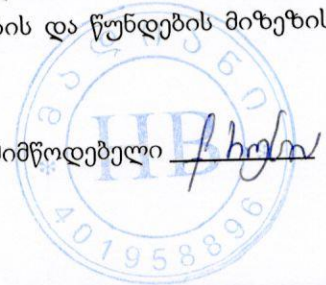 ის და წუნდების მიზეზის
მიმწოდებელი
HB
* 401958896